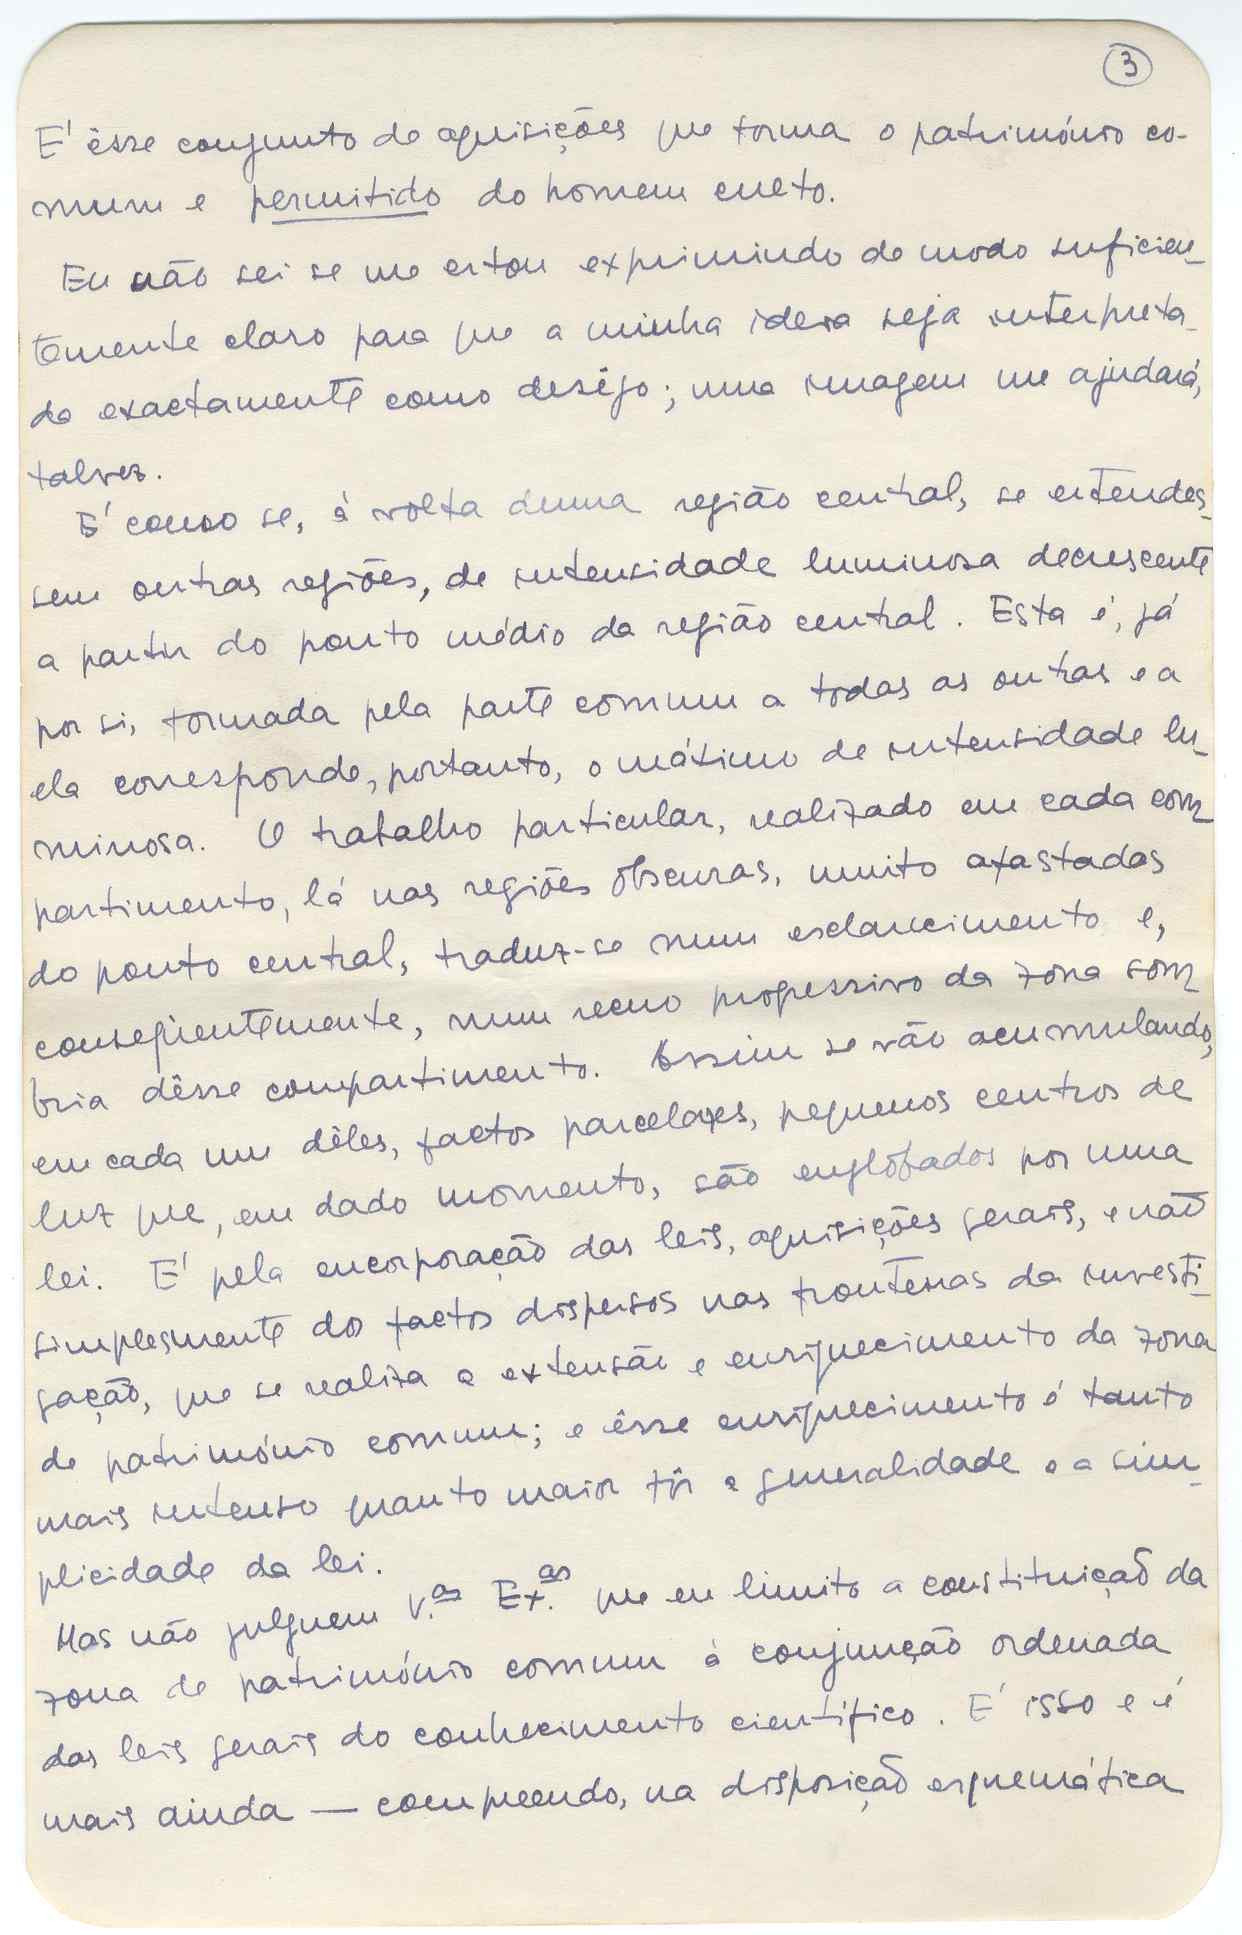 3
E' êsse conjunto de aquisições que forma o património co-
mum e permitido do homem culto.
Eu não sei se me estou exprimindo de modo suficien-
temente claro para que a minha ideia seja interpreta-
da exactamente como desejo; uma imagem me ajudará,
talvez.
E' como se, à volta duma região central, se estendes-
sem outras regiões, de intensidade luminosa decrescente
a partir do ponto médio da região central. Esta é, já
por si, formada pela parte comum a todas as outras e a
ela corresponde, portanto, o máximo de intensidade lu-
minosa. O trabalho particular, realizado em cada com-
partimento, lá nas regiões obscuras, muito afastadas
do ponto central, traduz-se num esclarecimento e,
conseqüentemente, num recuo progressivo da zona som-
bria dêsse compartimento. Assim se vão acumulando,
em cada um dêles, factos parcelares, pequenos centros de
luz que, em dado momento, são englobados por uma
lei. E' pela encorporação das leis, aquisições gerais, e não
simplesmente dos factos dispersos nas fronteiras da investi-
gação, que se realiza a extensão e enriquecimento da zona
de património comum; e êsse enriquecimento é tanto
mais intenso quanto maior fôr a generalidade e a sim-
plicidade da lei.
Mas não julguem V.as Ex.as que eu limito a constituição da
zona de património comum à conjunção ordenada
das leis gerais do conhecimento científico. E' isso e é
mais ainda — compreendo, na disposição esquemática